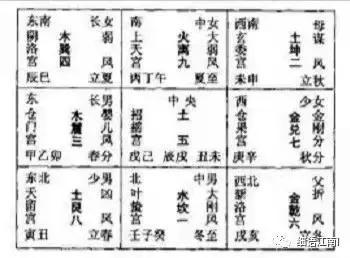 东南 长女
阴洛宫
木巽四
弱风
辰巳 立夏
南 中女
上天宫
火离九
大弱风
丙丁午 夏至
西南 母
玄委宫
土坤二
谋风
未申 立秋
东 长男
仓门宫
木震三
婴儿风
甲乙卯 春分
中央
招摇宫
土五
戊己 辰戌 丑未
西 少女
仓果宫
金兑七
金刚风
庚辛 秋分
东北 少男
天留宫
土艮八
凶风
寅丑 立春
北 中男
叶蛰宫
水坎一
大刚风
壬子癸 冬至
西北 父
新洛宫
金乾六
折风
戌亥 立冬
细语江南